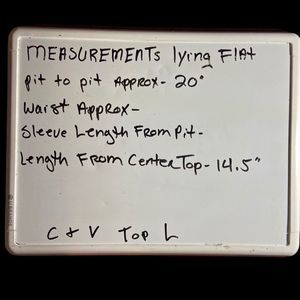 MEASUREMENTs lying Flat
pit to pit Approx- 20"
Waist Approx-
Sleeve Length From Pit-
Length From Center Top- 14.5"
C & V Top L